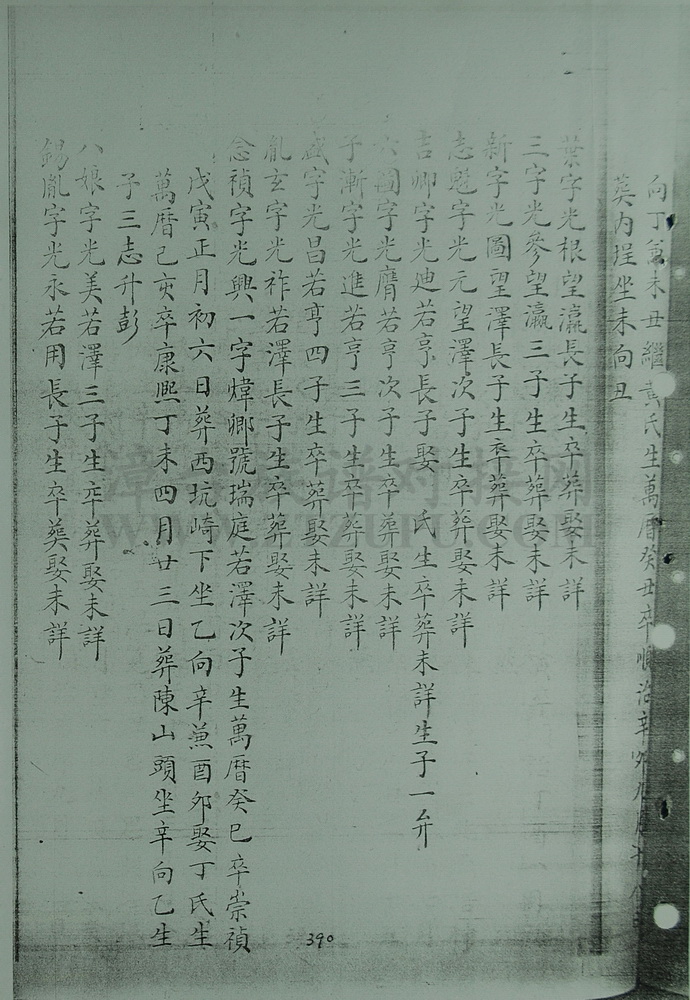 向丁兼未丑繼黃氏生萬曆癸丑卒順治辛卯
葬內埕坐未向丑
葉字光根望瀛長子生卒葬娶未詳
三字光參望瀛三子生卒葬娶未詳
新字光圖望澤長子生卒葬娶未詳
志魁字光元望澤次子生卒葬娶未詳
吉卿字光迪若亨長子娶 氏生卒葬未詳生子一弁
六圖字光膺若亨次子生卒葬娶未詳
于漸字光進若亨三子生卒葬娶未詳
盛字光昌若亨四子生卒葬娶未詳
胤玄字光祚若澤長子生卒葬娶未詳
念禎字光興一字煒卿號瑞庭若澤次子生萬曆癸巳卒崇禎
戊寅正月初六日葬西坑崎下坐乙向辛兼酉卯娶丁氏生
萬曆己亥卒康熙丁未四月廿三日葬陳山頭坐辛向乙生
子三志升彭
八娘字光美若澤三子生卒葬娶未詳
錫胤字光永若用長子生卒葬娶未詳
390